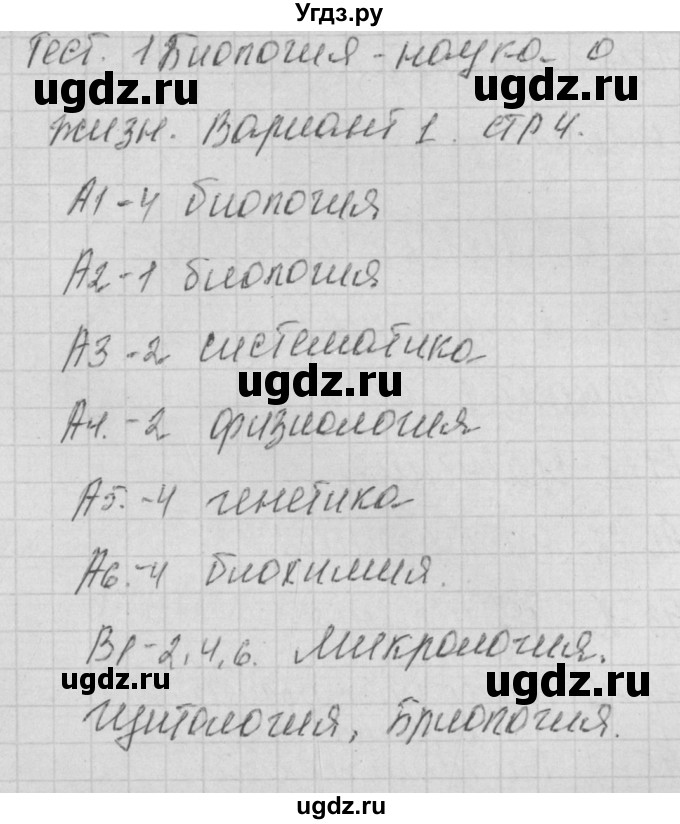 Угдз.ру
Тест. 1 Биология - наука о
ugdz.ru ugdz.ru
жизн. Вариант 1. стр 4.
А1-4 биология
А2-1 биология
А3-2 систематика
ugdz.ru
А4.-2 физиология
А5.-4 генетика
А6.-4 биохимия.
В1-2,4,6. Микрология.
ugdz.ru ugdz.ru
Цитология, Бриология.
ugdz.ru